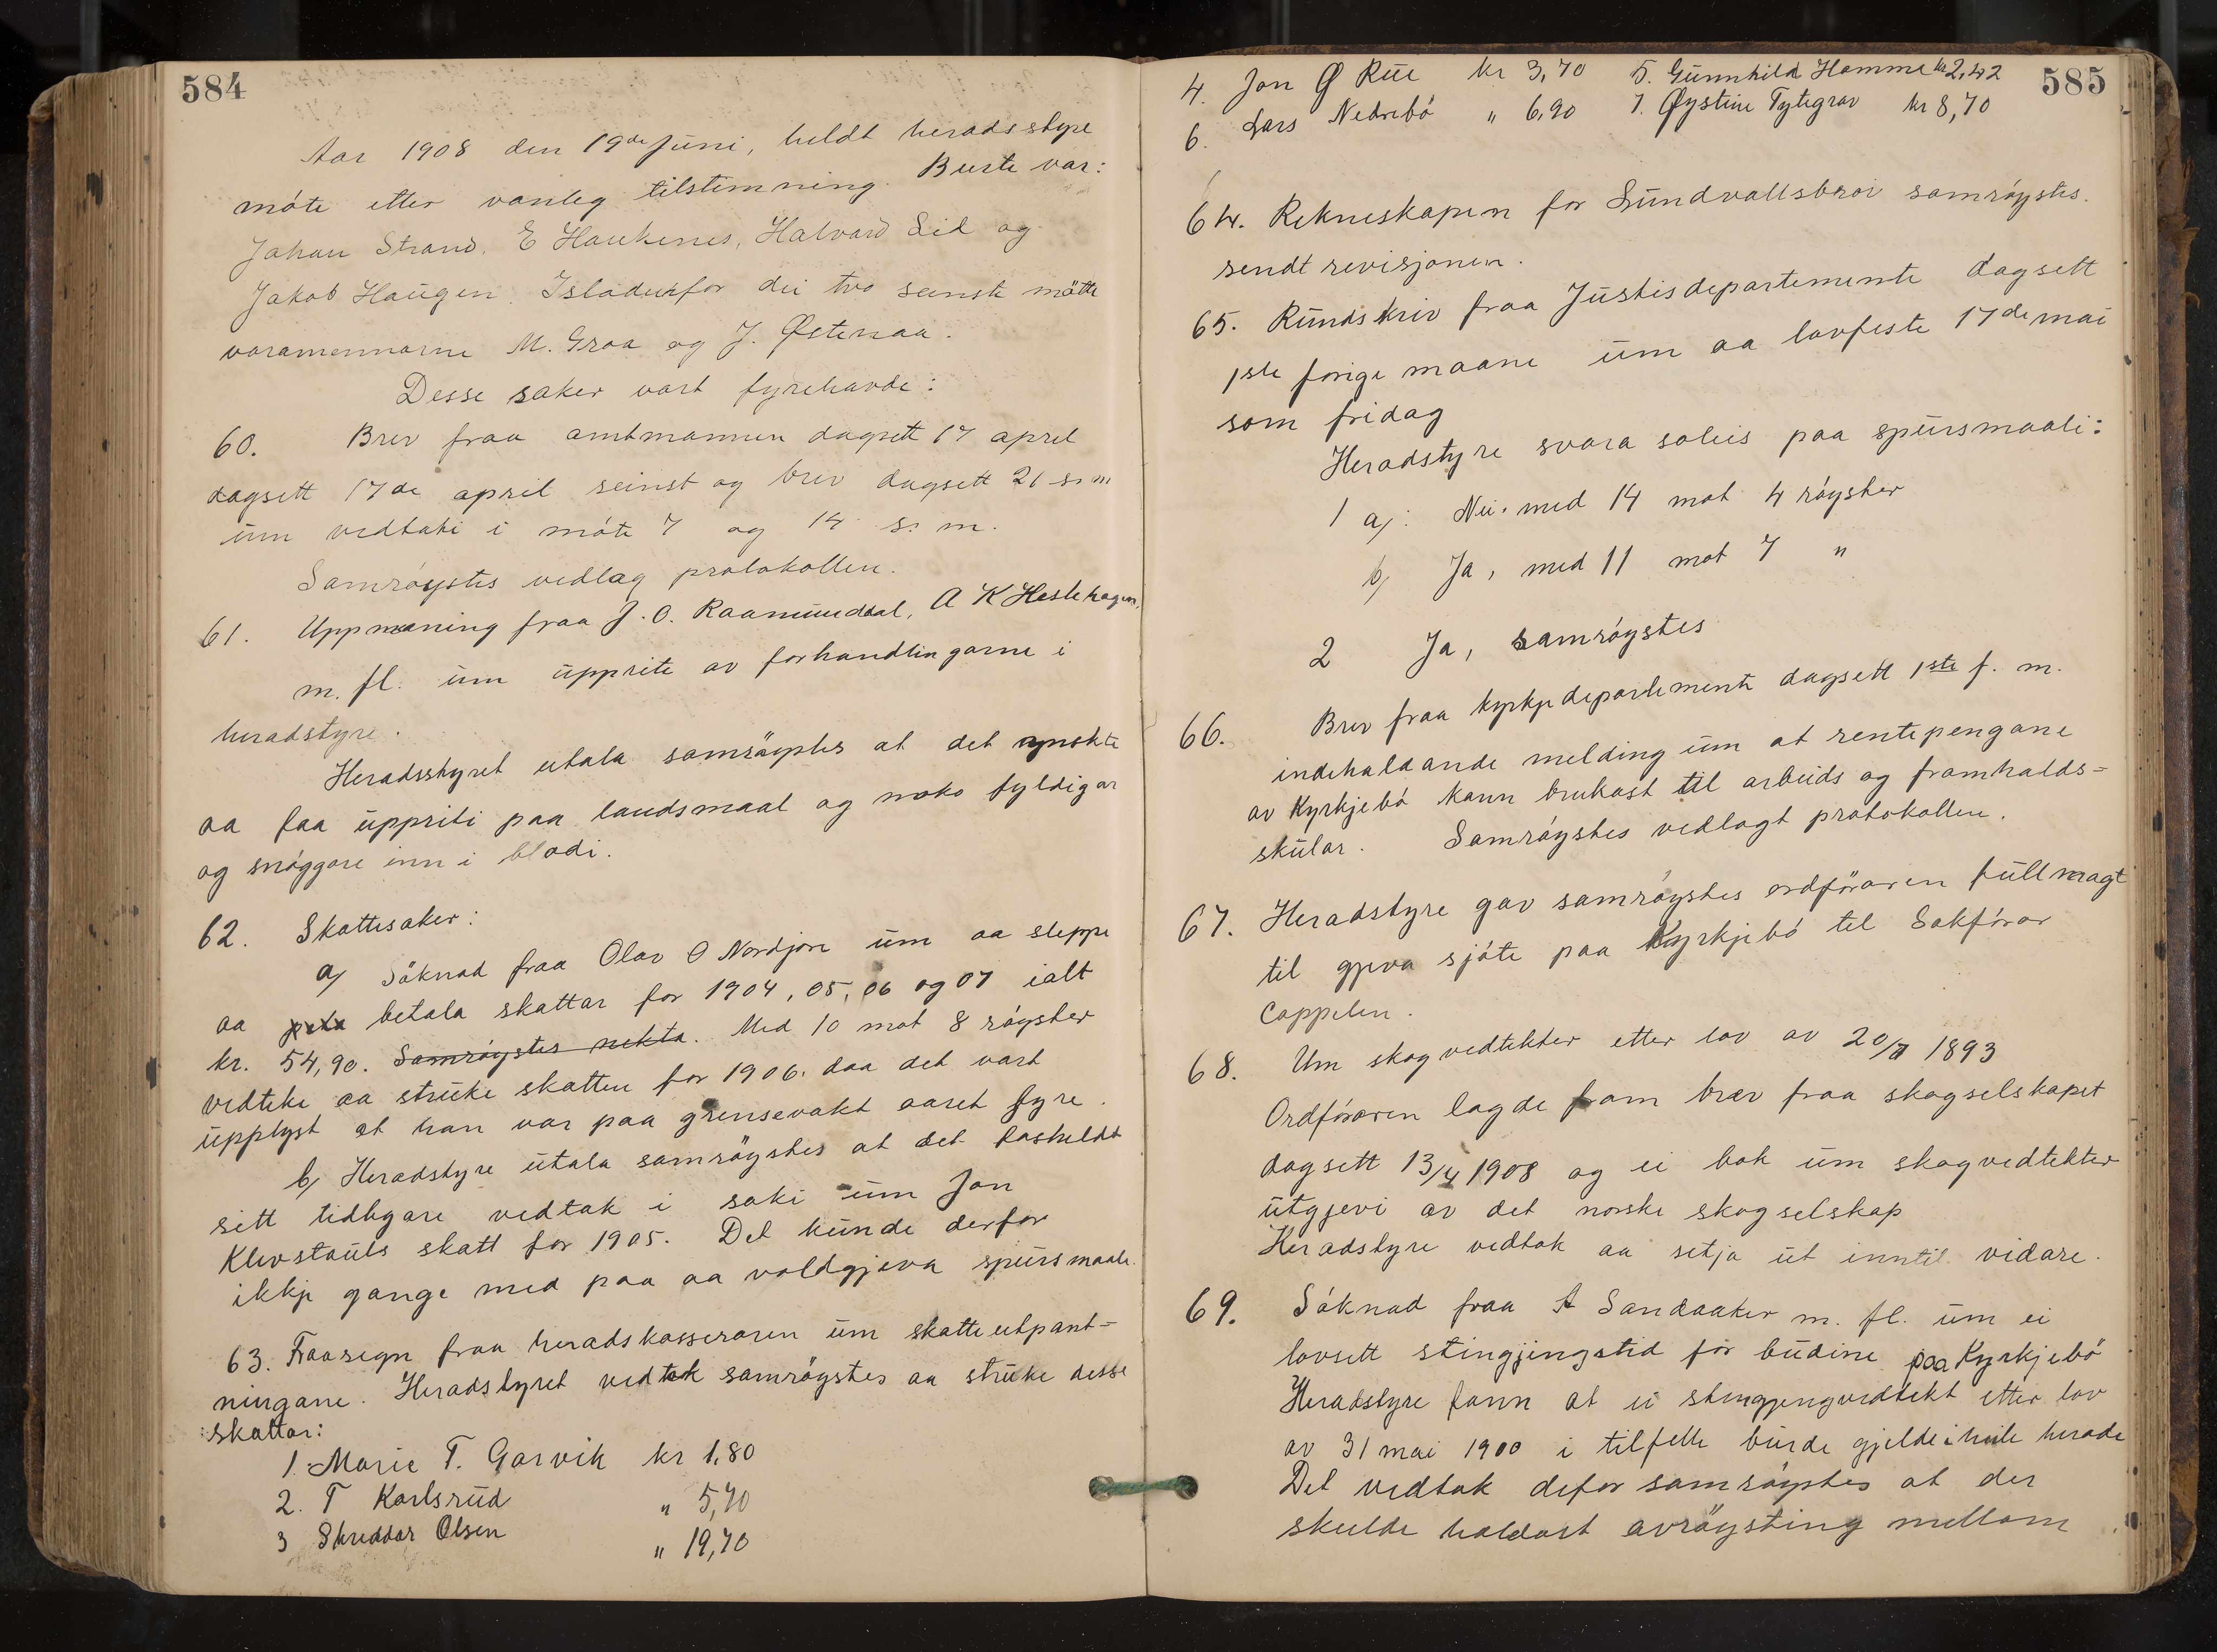 584
Aar 1908 den 19de juni, heldt heradsstyre
móte etter vanleg tilstemning. Burte var:
Johan Strand, E Haukenes, Halvard Lid og
Jakob Haugen. Isladenfor dei tvo seinste mötte
varamennarne M. Groa og J. Østenaa.
Desse saker vart fyrehavde:
60. Brev fraa amtmannen dagsett 17 april
dagsett 17de april seinst og brev dagsett 21 s. m
um vedtaki i móte 7 og 14 s. m.
Samróystes vedlag protokollen.
61. Uppmoning fraa J. O. Raamunddal, A K Heslehagen,
m. fl. um upprite av forhandlingarne i
heradstyre.
Heradsstyret utala samröystes at det ynskte
aa faa uppriti paa landsmaal og noko fyldigar
og snóggare inn i bladi.
62. Skattesaker:
a) Söknad fraa Olav O Nordjore um aa sleppe
aa betala skattar for 1904, 05, 06 og 07 ialt
kr. 54,90. Samróystes nekta. Med 10 mot 8 róyster
vedteke aa struke skatten for 1906. daa det vart
upplyst at han var paa grensevakt aaret fyre.
b) Heradstyre utala samröystes at det fastheldt
sitt tidligare vedtak i saki um Jon
Klevstauls skatt for 1905. Det kunde derfor
ikkje gange med paa aa voldgjeva spursmaale.
63. Fraasegn fraa heradskasseraren um skatteutpant-
ningane. Heradstyret vedtok samróystes aa struke desse
skattar:
1. Marie T. Garvik kr 1,80
2. T Karlsrud " 5,70
3 Skreddar Olsen " 19,70
585
4. Jon Ø Rue kr 3,70 5. Gunnhild Homme kr 2,42
6. Lars Nedrebó " 6,90 7. Øystine Tytegrav kr 8,70
64. Rekneskapen for Sundvallsbroi samróystes.
sendt revisjonen.
65. Rundskriv fraa Justisdepartemente dagsett
1ste forige maane um aa lovfeste 17de mai
som fridag
Heradstyre svara soleis paa spursmaali:
1 a): Nei. med 14 mot 4 róyster
b) Ja, med 11 mot 7 "
2 Ja, samróystes
66. Brev fraa kyrkjedepartemente dagsett 1ste f. m.
indehaldande melding um at rentepengane
av Kyrkjebó kann brukast til arbeids og framhalds=
skular. Samróystes vedlagt protokollen.
67. Heradstyre gav samróystes ordföraren fullmagt
til gjeva sjóte paa Kyrkjebó til Sakfórar
Cappelen.
68. Um skogvedtekter etter lov av 20/7 1893
Ordfóraren lagde fram brev fraa skogselskapet
dagsett 13/4 1908 og ei bok um skogvedtekter
utgjevi av det norske skogselskap
Heradstyre vedtok aa setja ut inntil vidare.
69. Sóknad fraa A Sandaaker m. fl. um ei
lovsett stingjingstid for budine paa Kyrkjebö
Heradstyre fann at ei stengjengvedtekt etter lov
av 31 mai 1900 i tilfelle burde gjelde i heile herade
Det vedtok defor samróystes at der
skulde haldast avröysting mellom